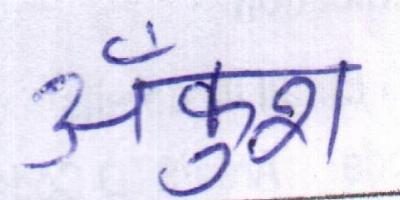 अँकुश